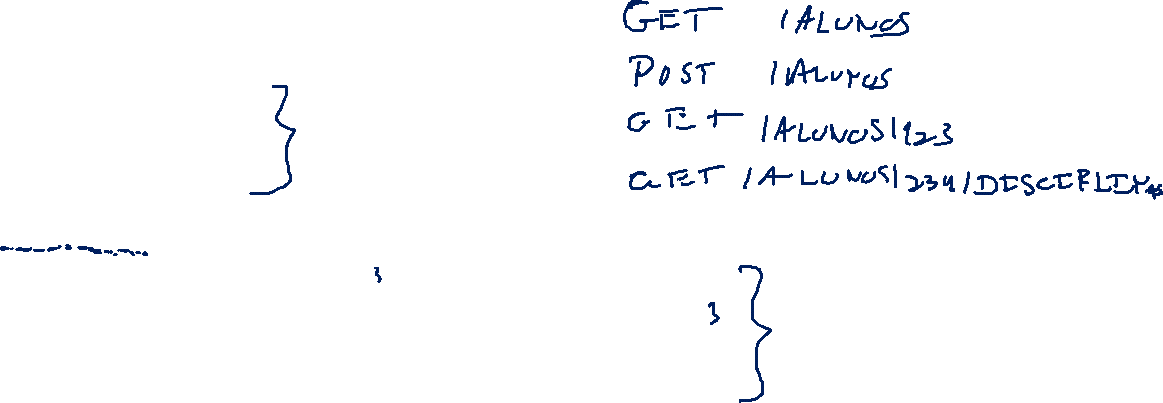 GET /ALUNOS
POST /ALUNOS
GET /ALUNOS/123
GET /ALUNOS/234/DISCIPLINAS
3
3